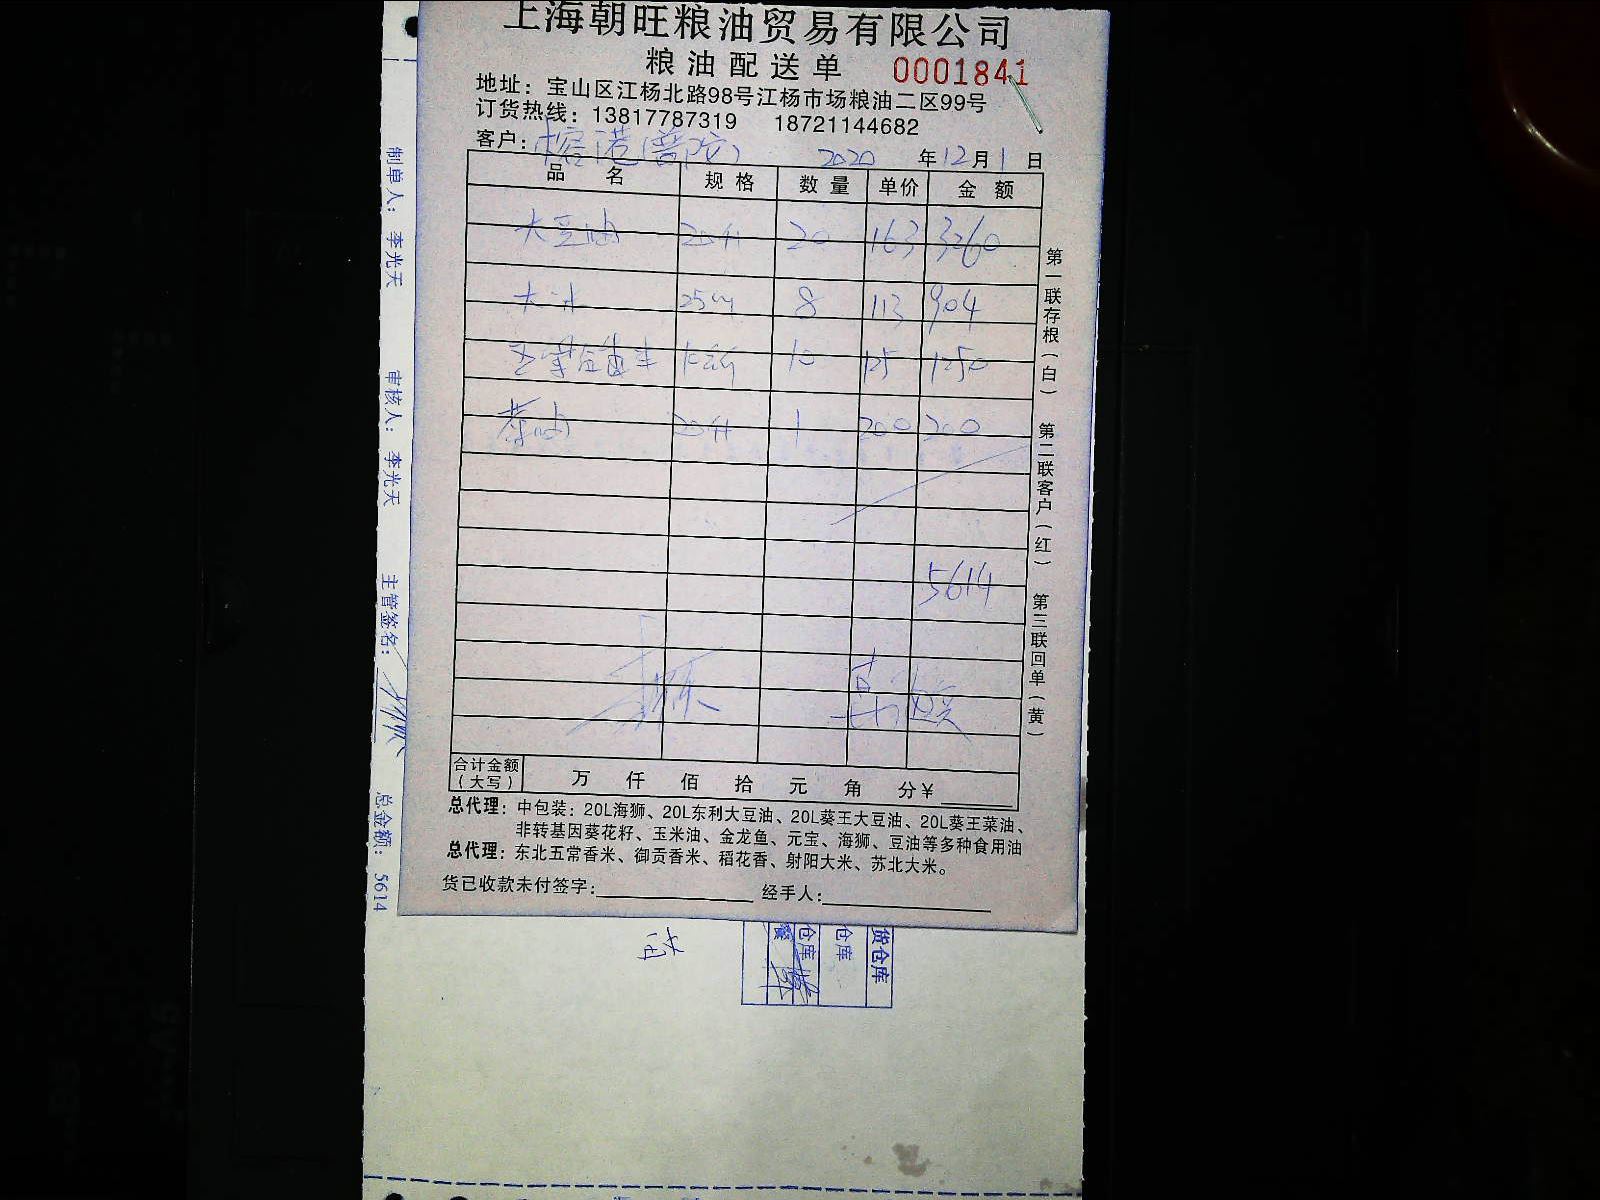 上海朝旺粮油贸易有限公司
粮油配送单 0001841
地址：宝山区江杨北路98号江杨市场粮油二区99号
订货热线：13817787319 18721144682
客户：榕港(普陀) 2020年12月1日
品名 规格 数量 单价 金额
大豆油 20升 20 163 3260
8 113 904
10 125 1250
菜油 20升 1 200 200
5614
合计金额（大写） 万 仟 佰 拾 元 角 分￥
总代理：中包装：20L海狮、20L东利大豆油、20L葵王大豆油、20L葵王菜油、
非转基因葵花籽、玉米油、金龙鱼、元宝、海狮、豆油等多种食用油
总代理：东北五常香米、御贡香米、稻花香、射阳大米、苏北大米。
货已收款未付签字： 经手人：
第一联存根（白） 第二联客户（红） 第三联回单（黄）
制单人：李光天 审核人：李光天 主管签名： 总金额：5614
货仓库
仓库
仓库